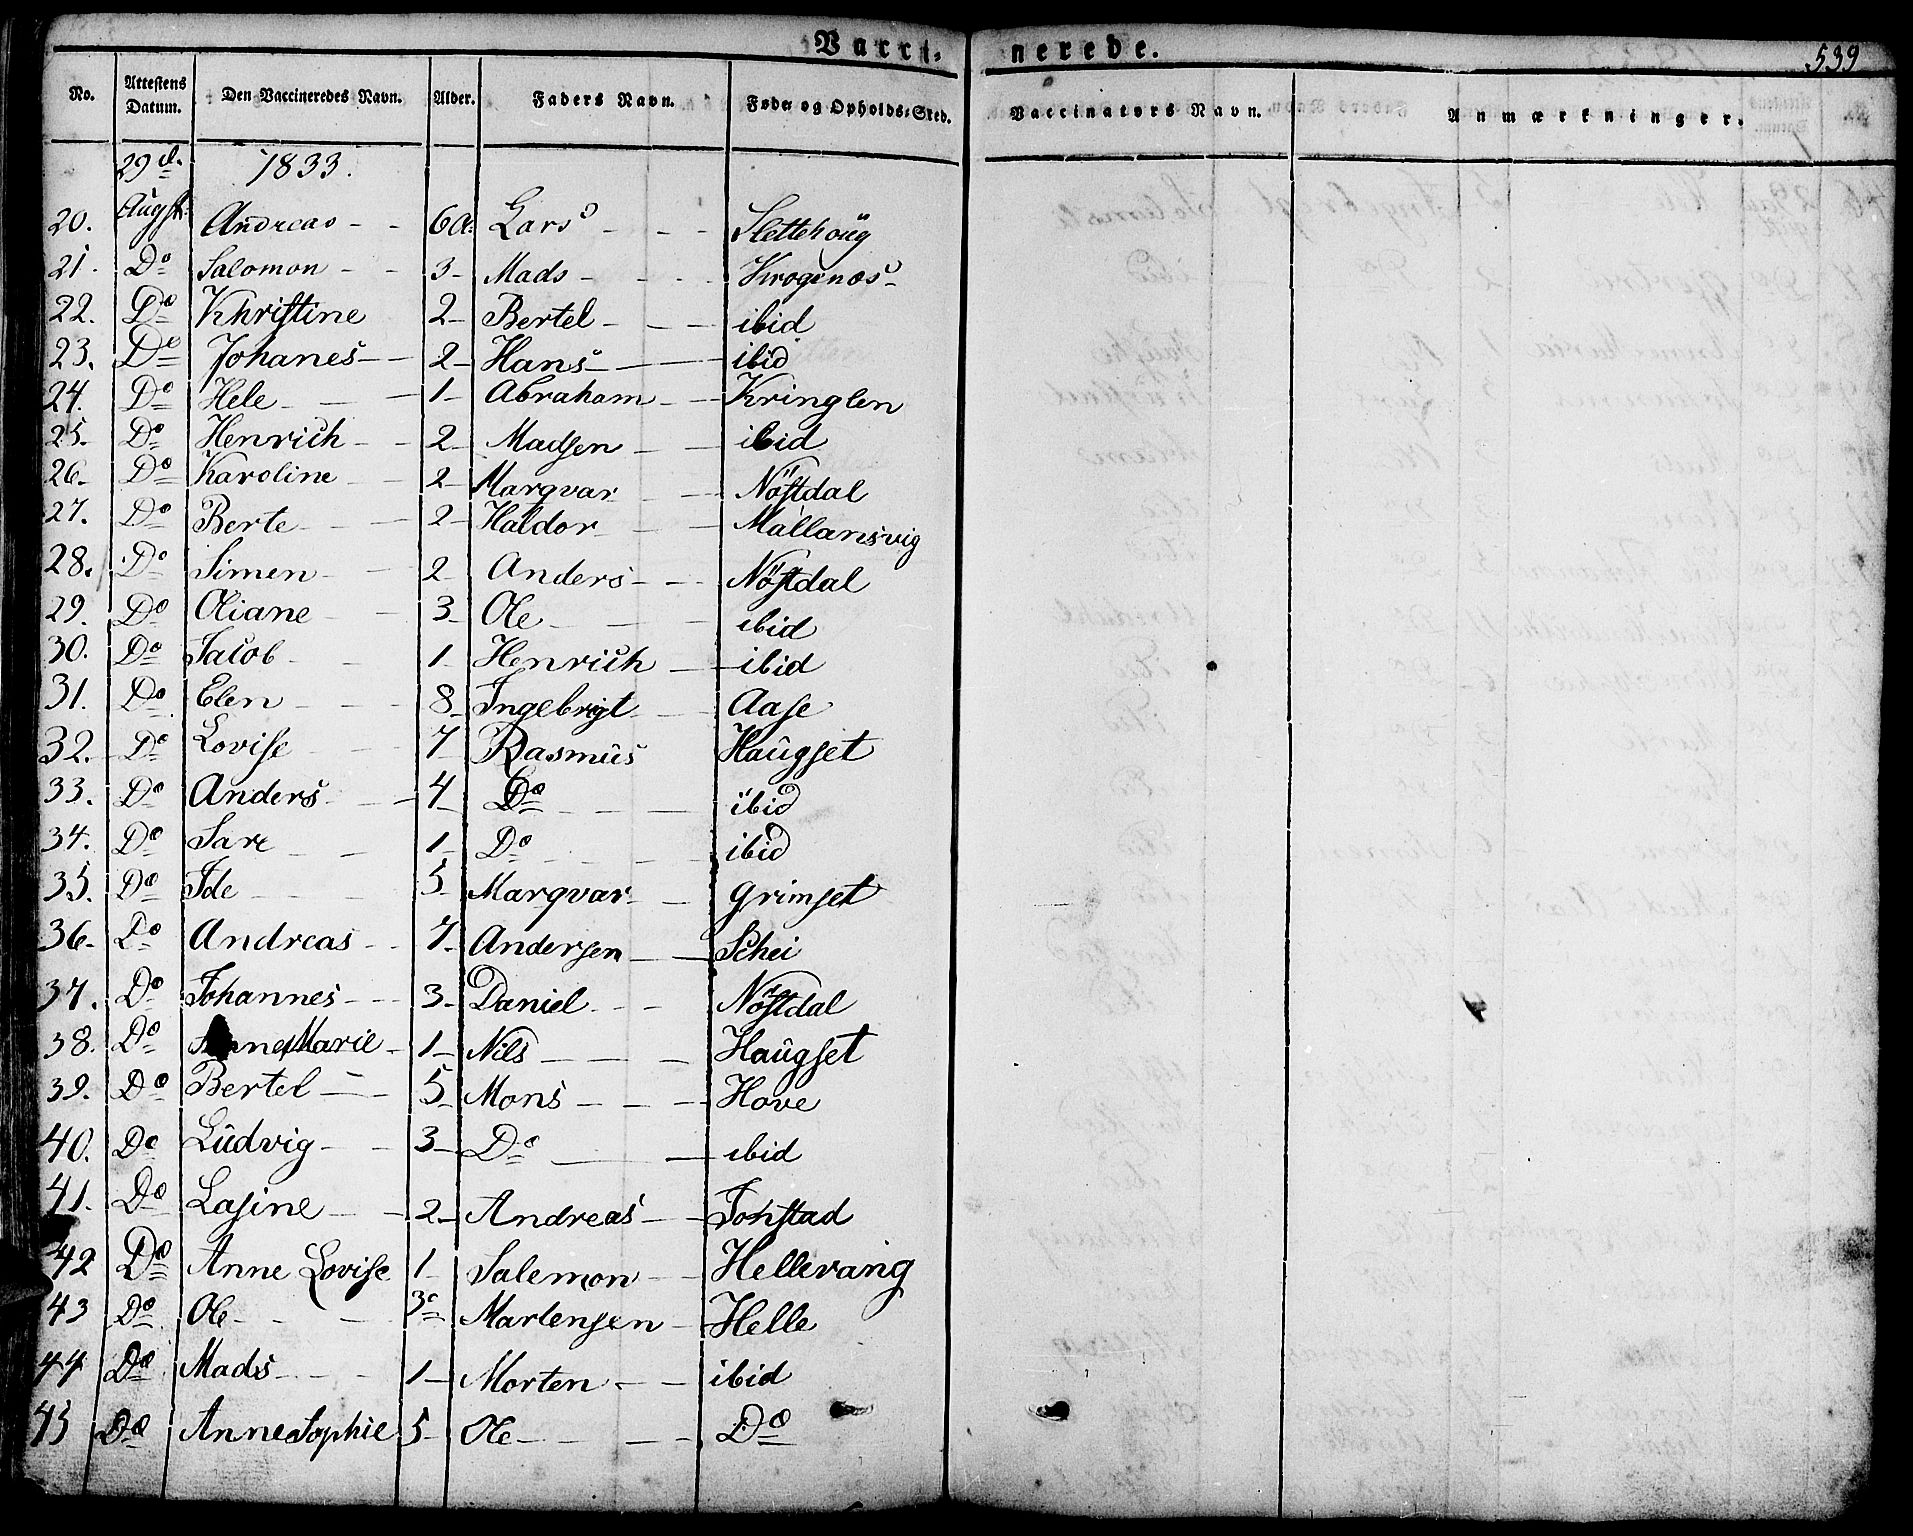 Vacci- nerede. 539
No. Attestens Datum. Den Vaccineredes Navn. Alder. Faders Navn. Føde og Opholds-Sted. Vaccinators Navn. Anmærkninger.
29d. 1833.
20. Augst. Andreas - - 6 a. Lars - - - Slettehöug
21. Do Salomon - - 3 - Mads - - - Krogenæs -
22. Do Khristine 2 - Bertel - - - ibid
23. Do Johanes - - 2 - Hans - - ibid
24. Do Hele - - - 1 - Abraham - - Kringlen
25. Do Henrich - - 2 - Madsen - - ibid
26. Do Karoline - - 2 - Marqvar - - Nöstdal
27. Do Berte - - - 2 - Haldor - - Mállansvig
28. Do Simen - - 2 - Anders - - Nöstdal
29. Do Oliane - 3. Ole - - - ibid
30. Do Jacob - - 1 - Henrich - - ibid
31. Do Elen - - - 8 - Ingebrigt - - Aase
32. Do Lovise - - 7 - Rasmus Haugset
33. Do Anders - - 4 - Do - - - ibid
34. Do Sare - - 1 - Do - - - ibid
35. Do Ide - - - 5 - Marqvar - - Grimset
36. Do Andreas - - 7. - Andersen - - Schei
37. Do Johannes - - - 3 - Daniel - - - Nöstdal
38. Do Anne Marie - 1 - Nils - - - Haugset
39. Do Bertel - - 5 - Mons - - - Hove
40. Do Ludvig - - 3 - Do - - ibid
41. Do Lasine - - 2 - Andreas - - Jonstad
42 Do Anne Lovise 1 - Salemon - - Hellevang
43 Do Ole - - - 3 - Martensen - Helle
44 Do Mads - - - 1 - Morten - - ibid
45 Do Anne Sophie 5 - Ole - - - Do